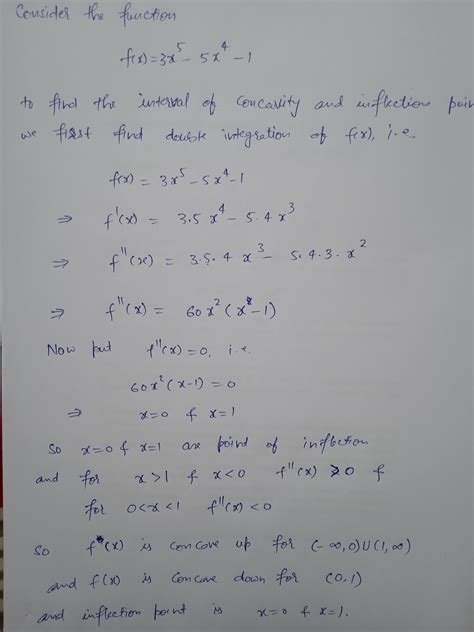 Consider the function
f(x) = 3x⁵ - 5x⁴ - 1
to find the interval of concavity and inflection poin
we first find double integration of f(x), i.e.
f(x) = 3x⁵ - 5x⁴ - 1
⇒ f'(x) = 3.5 x⁴ - 5.4 x³
⇒ f''(x) = 3.5.4 x³ - 5.4.3.x²
⇒ f''(x) = 60x² (x - 1)
Now put f''(x) = 0, i.e.
60x² (x-1) = 0
⇒ x=0 & x=1
So x=0 & x=1 are point of inflection
and for x>1 & x<0 f''(x) ≥ 0 &
for 0<x<1 f''(x) < 0
So f(x) is concave up for (-∞,0)∪(1,∞)
and f(x) is concave down for (0,1)
and inflection point is x=0 & x=1.